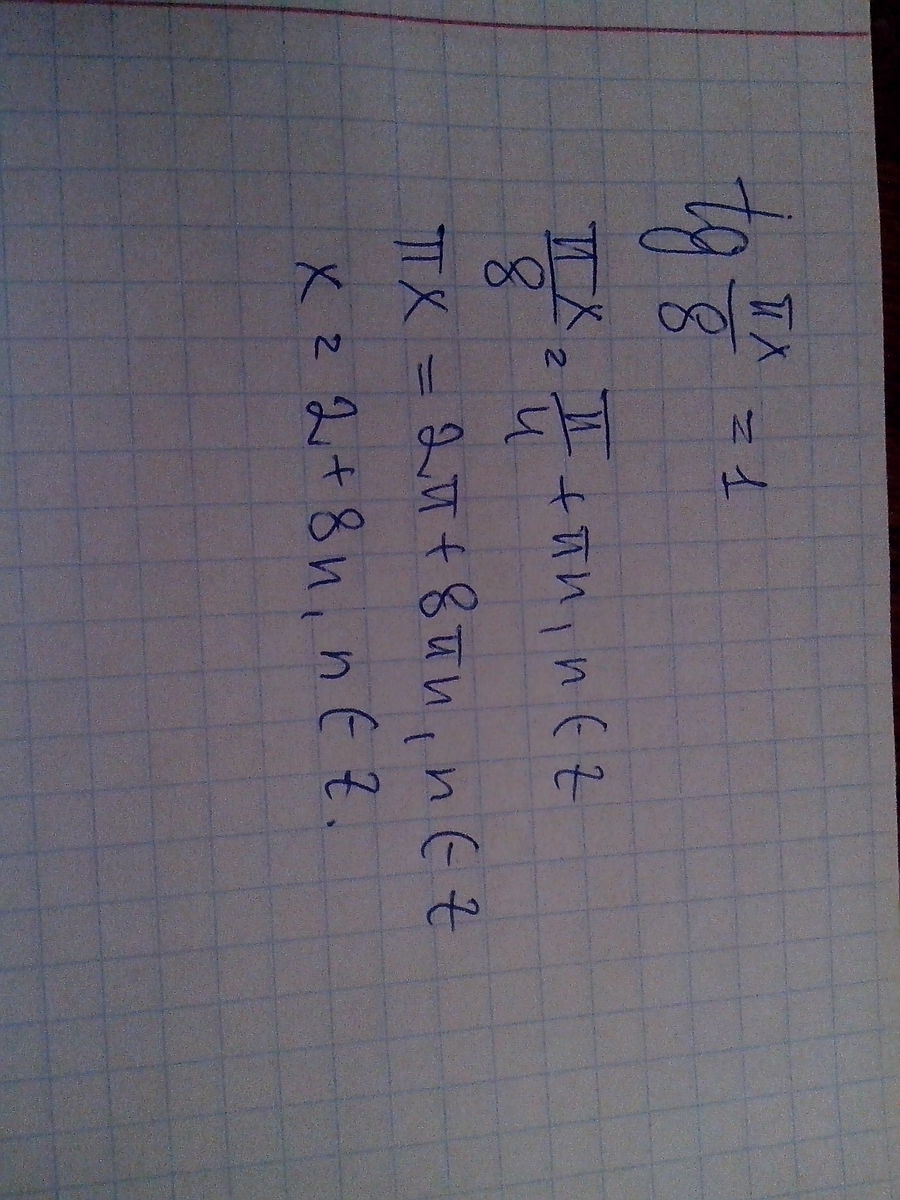 tg πx/8 = 1
πx/8 = π/4 + πn, n ∈ Z
πx = 2π + 8πn, n ∈ Z
x = 2 + 8n, n ∈ Z.